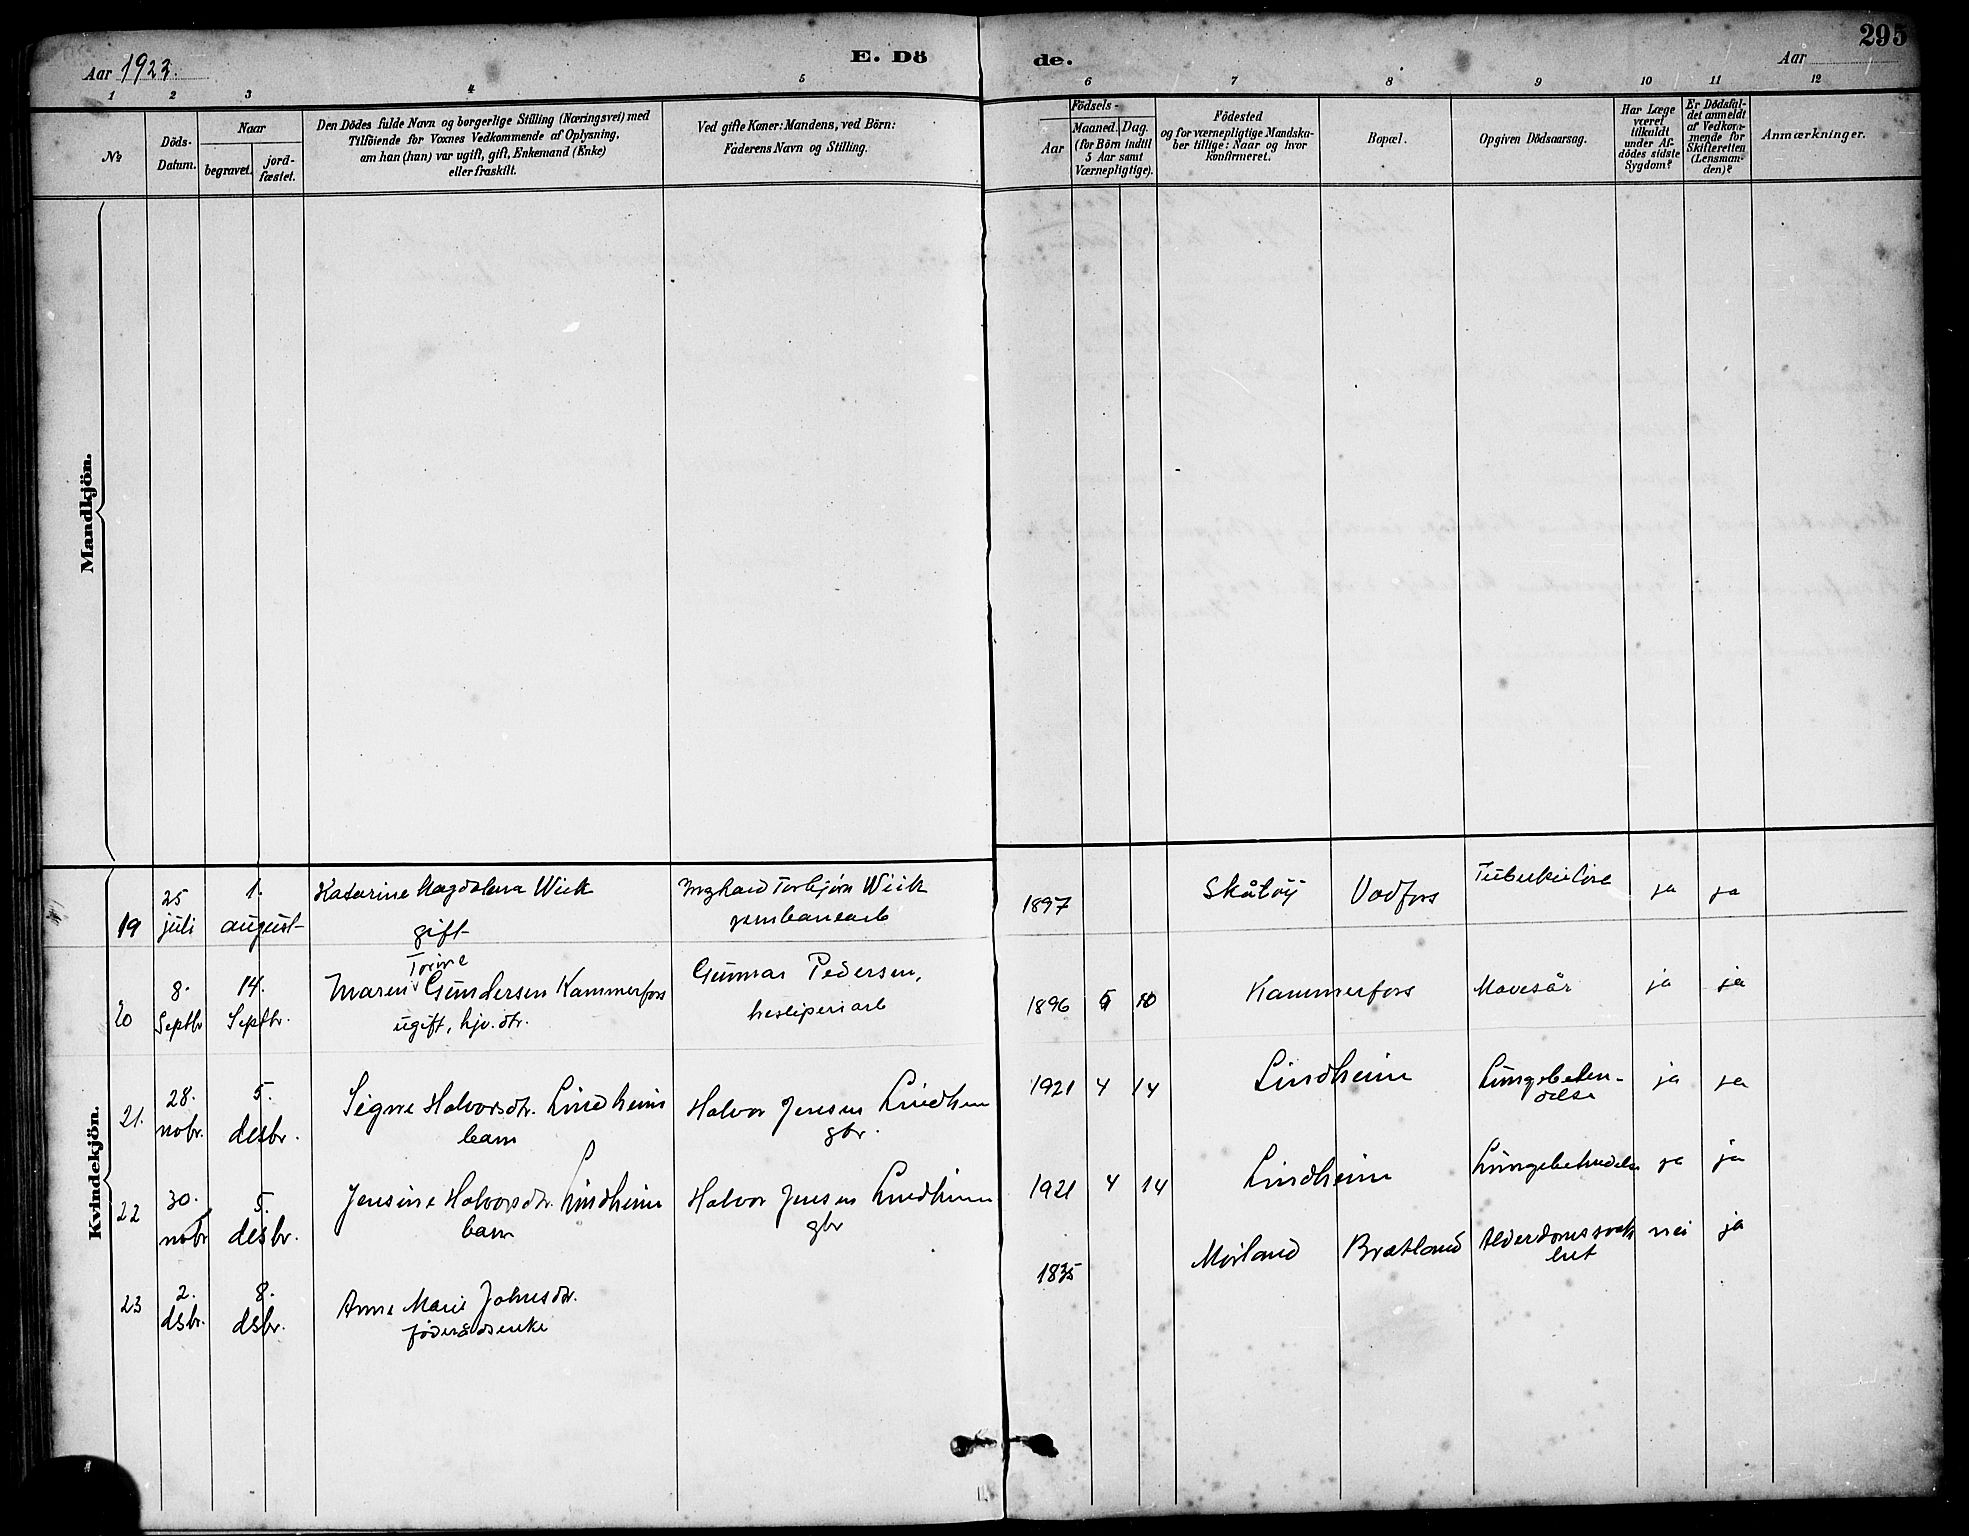 295
Aar 1923.
E. Dö
de.
Aar
1 2 3 4 5 6 7 8 9 10 11 12
№
Döds-
Datum.
Naar
begravet.
jord-
fæstet.
Den Dödes fulde Navn og borgerlige Stilling (Næringsvei) med
Tilföiende for Voxnes Vedkommende af Oplysning,
om han (hun) var ugift, gift, Enkemand (Enke)
eller fraskilt.
Ved gifte Koner: Mandens, ved Börn:
Faderens Navn og Stilling.
Födsels-
Aar
Maaned. Dag.
(for Börn indtil
5 Aar samt
Værnepligtige).
Födested
og for værnepligtige Mandska-
ber tillige: Naar og hvor
konfirmeret.
Bopæl.
Opgiven Dödsaarsag.
Har Læge
været
tilkaldt
under Af-
dödes sidste
Sygdom?
Er Dödsfal-
det anmeldt
af Vedkom-
mende for
Skifteretten
(Lensman-
den)?
Anmærkninger.
Mandkjön.
Kvindekjön.
19 25 juli 1. august Katarine Magdalena Wiik
gift
Torbjörn Wiik
1897 Skåtöy Vadfos Tuberkulose ja ja
20 8. Septbr 14. Septbr. Maren Trine Gundersen Kammerfos
ugift, hjv. dtr.
Gunnar Pedersen,
1896 10 Kammerfoss Mavesår ja ja
21. 28. nobr. 5. desbr. Signe Halvorsdtr. Lindheim
barn
Halvor Jensen Lindheim
gbr.
1921 4 14 Lindheim Lungebeten-
delse ja ja
22 30. nobr 5. desbr. Jensine Halvorsdtr. Lindheim
barn
Halvor Jensen Lindheim
gbr
1921 4 14 Lindheim Lungebetendelse ja ja
23 2. dsbr. 8. dsbr. Anne Marie Johnsdtr.
föderådsenke
1835 Mörland Bråtland Alderdomssvak
het nei ja